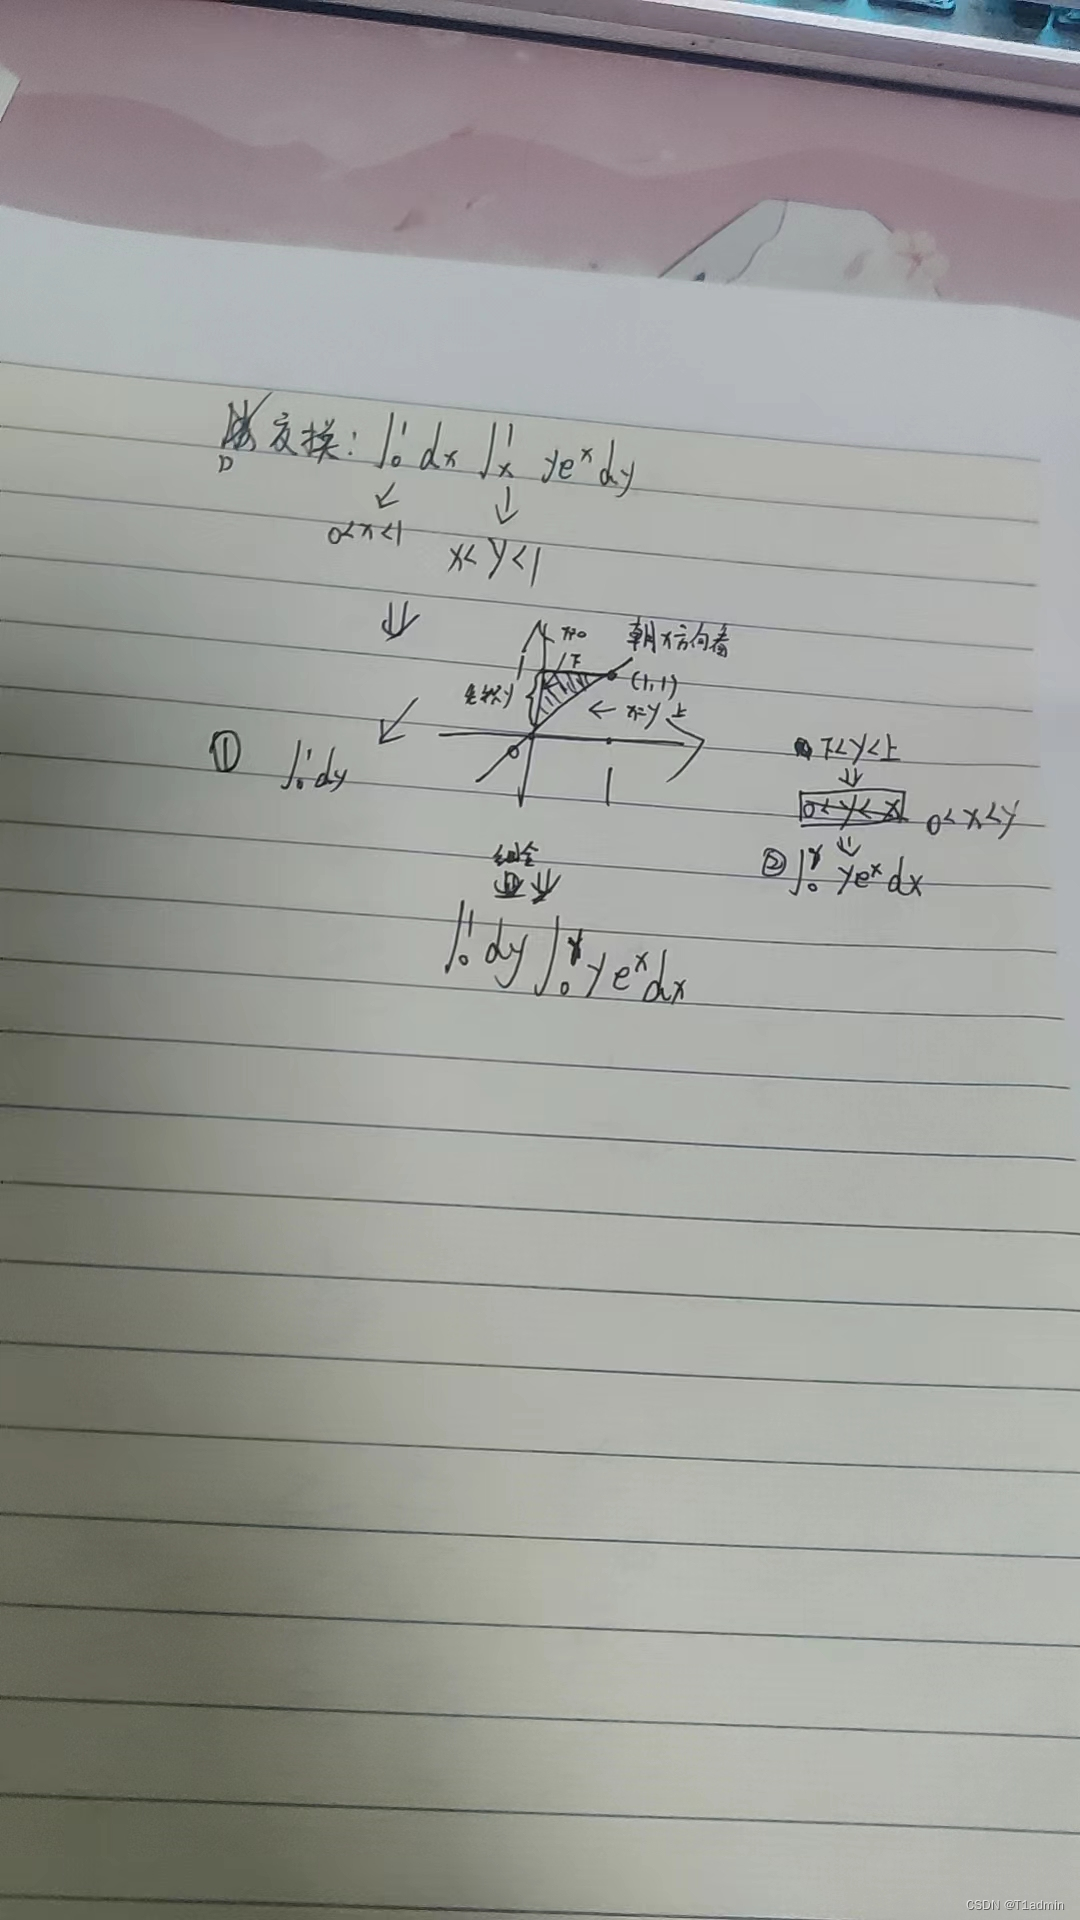 交换: ∫₀¹ dx ∫ₓ¹ yeˣdy
D
↙ ↓
0<x<1 x<y<1
⇓
x=0 朝x方向看
1 下 (1,1)
先积y ← x=y 上
① ∫₀¹dy
0 1
下<y<上
⇓
0<y<x 0<x<y
⇓
② ∫₀ʸ yeˣdx
组合
⇓
∫₀¹ dy ∫₀ʸ yeˣdx
CSDN @T1admin